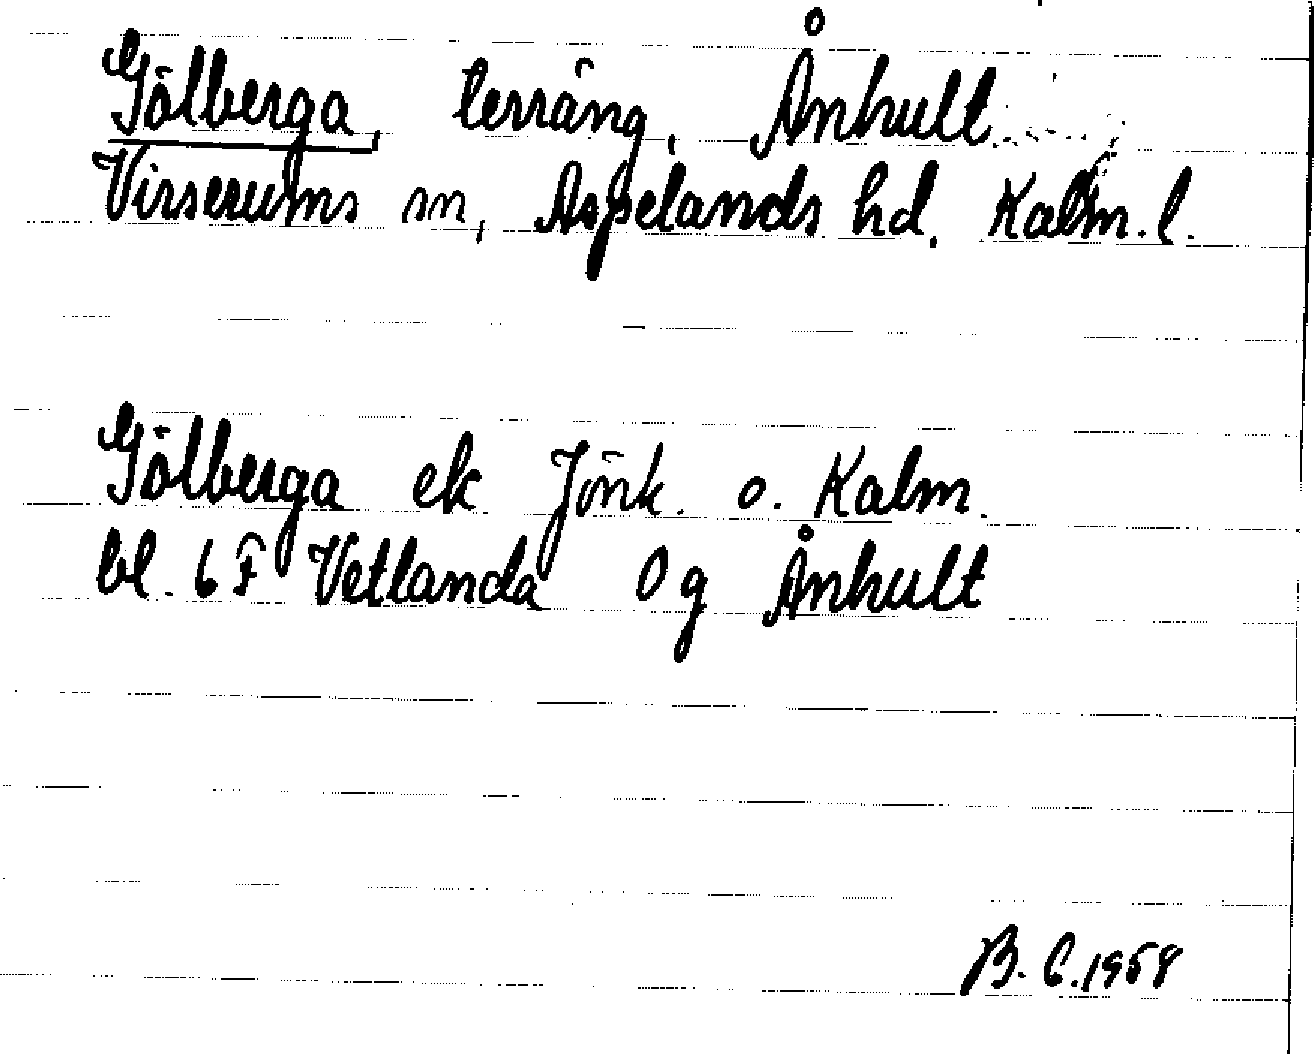 Gölberga, terräng, Ånhult
Virserums sn, Aspelands hd, Kalm. l.
Gölberga ek Jönk. o. Kalm.
bl. 6F Vetlanda 0g Ånhult
B. C. 1958